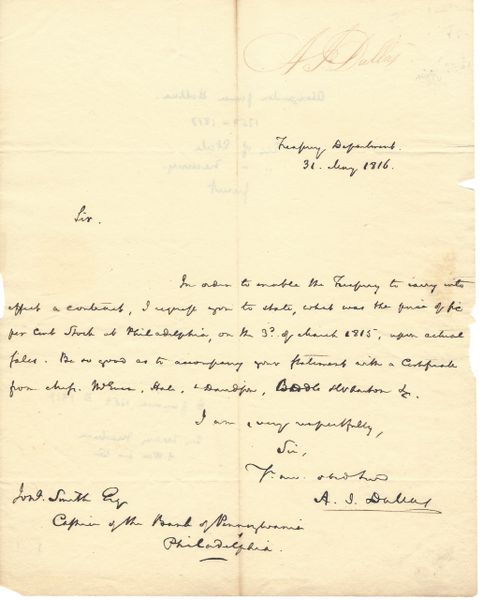 A J Dallas
Treasury Department.
31. May 1816.
Sir.
In order to enable the Treasury to carry into
effect a contract, I request you to state, what was the price of six
per Cent Stock at Philadelphia, on the 3d. of March 1815, upon actual
sales. Be so good as to accompany your Statement with a Certificate
from Messrs. McEuen, Hale, & Davidson, Biddle & Wharton &c.
I am very respectfully,
Sir,
A. J. Dallas
Jond. Smith Esq
Cashier of the Bank of Pennsylvania
Philadelphia.